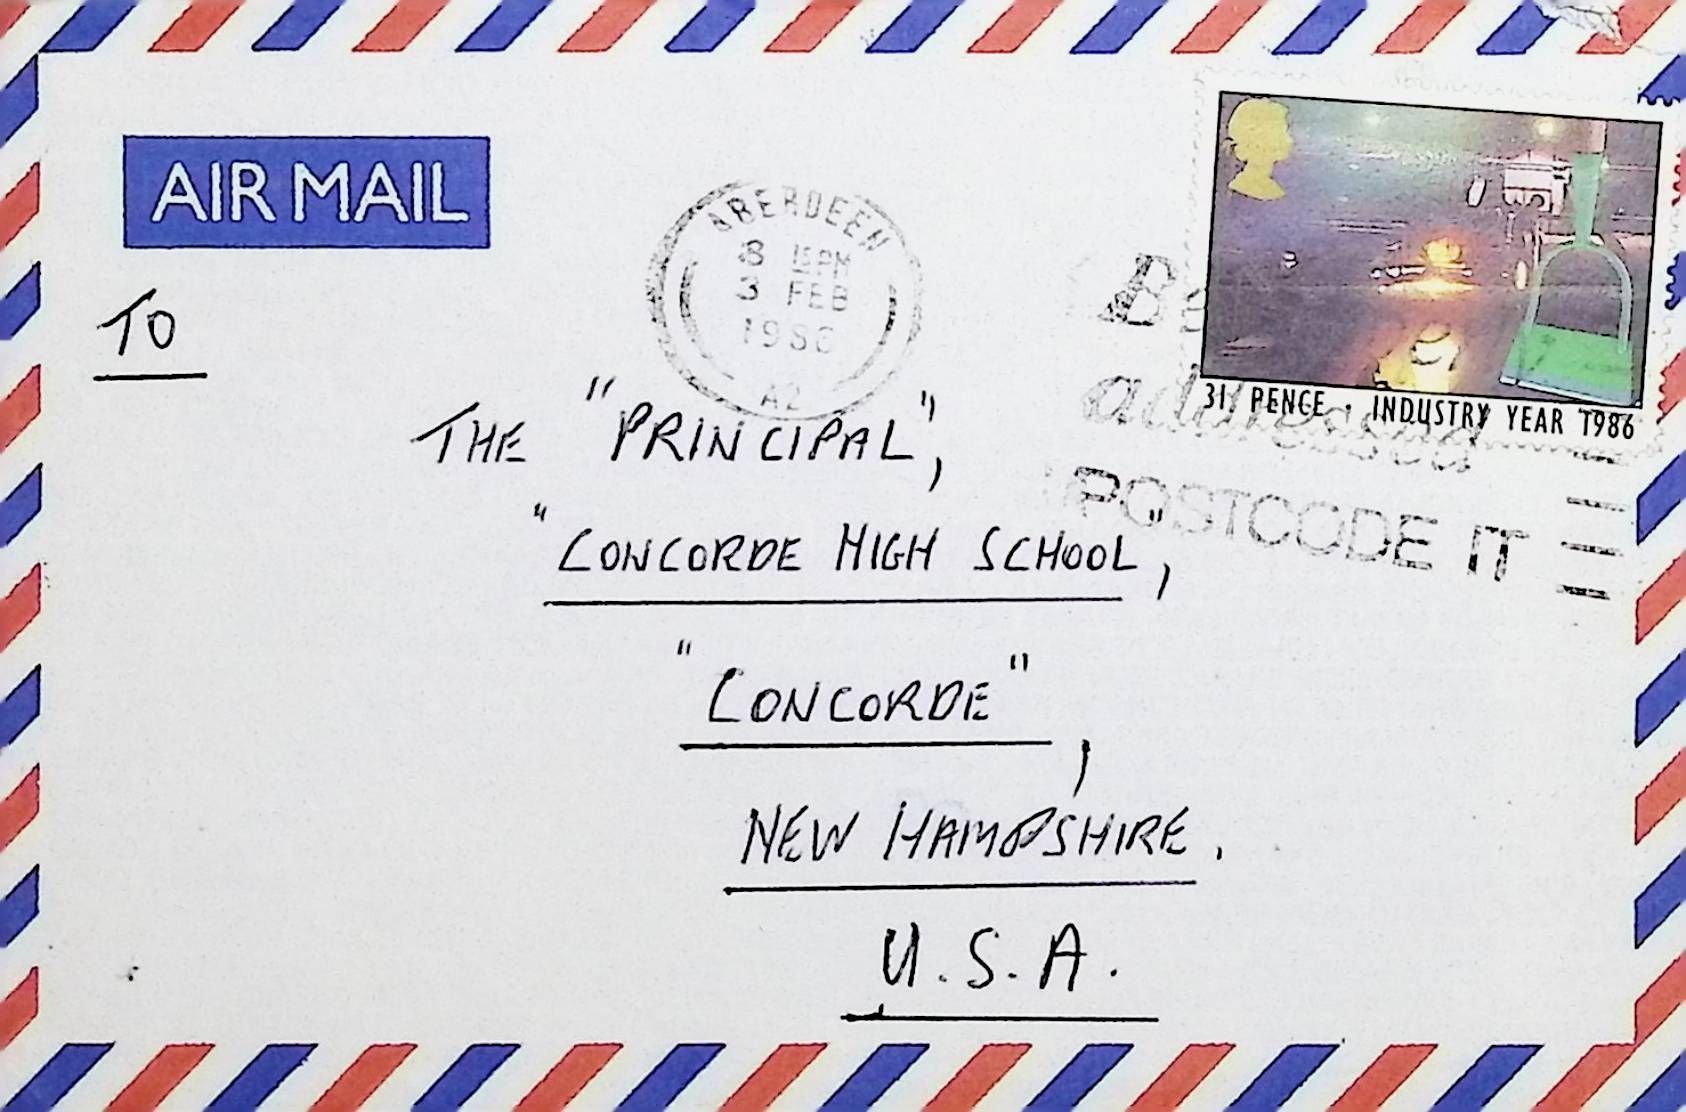 AIR MAIL
ABERDEEN
8 15 PM
3 FEB
1986
A2
31 PENCE · INDUSTRY YEAR 1986
addressed
POSTCODE IT
TO
THE "PRINCIPAL",
"CONCORDE HIGH SCHOOL",
"CONCORDE",
NEW HAMPSHIRE.
U.S.A.